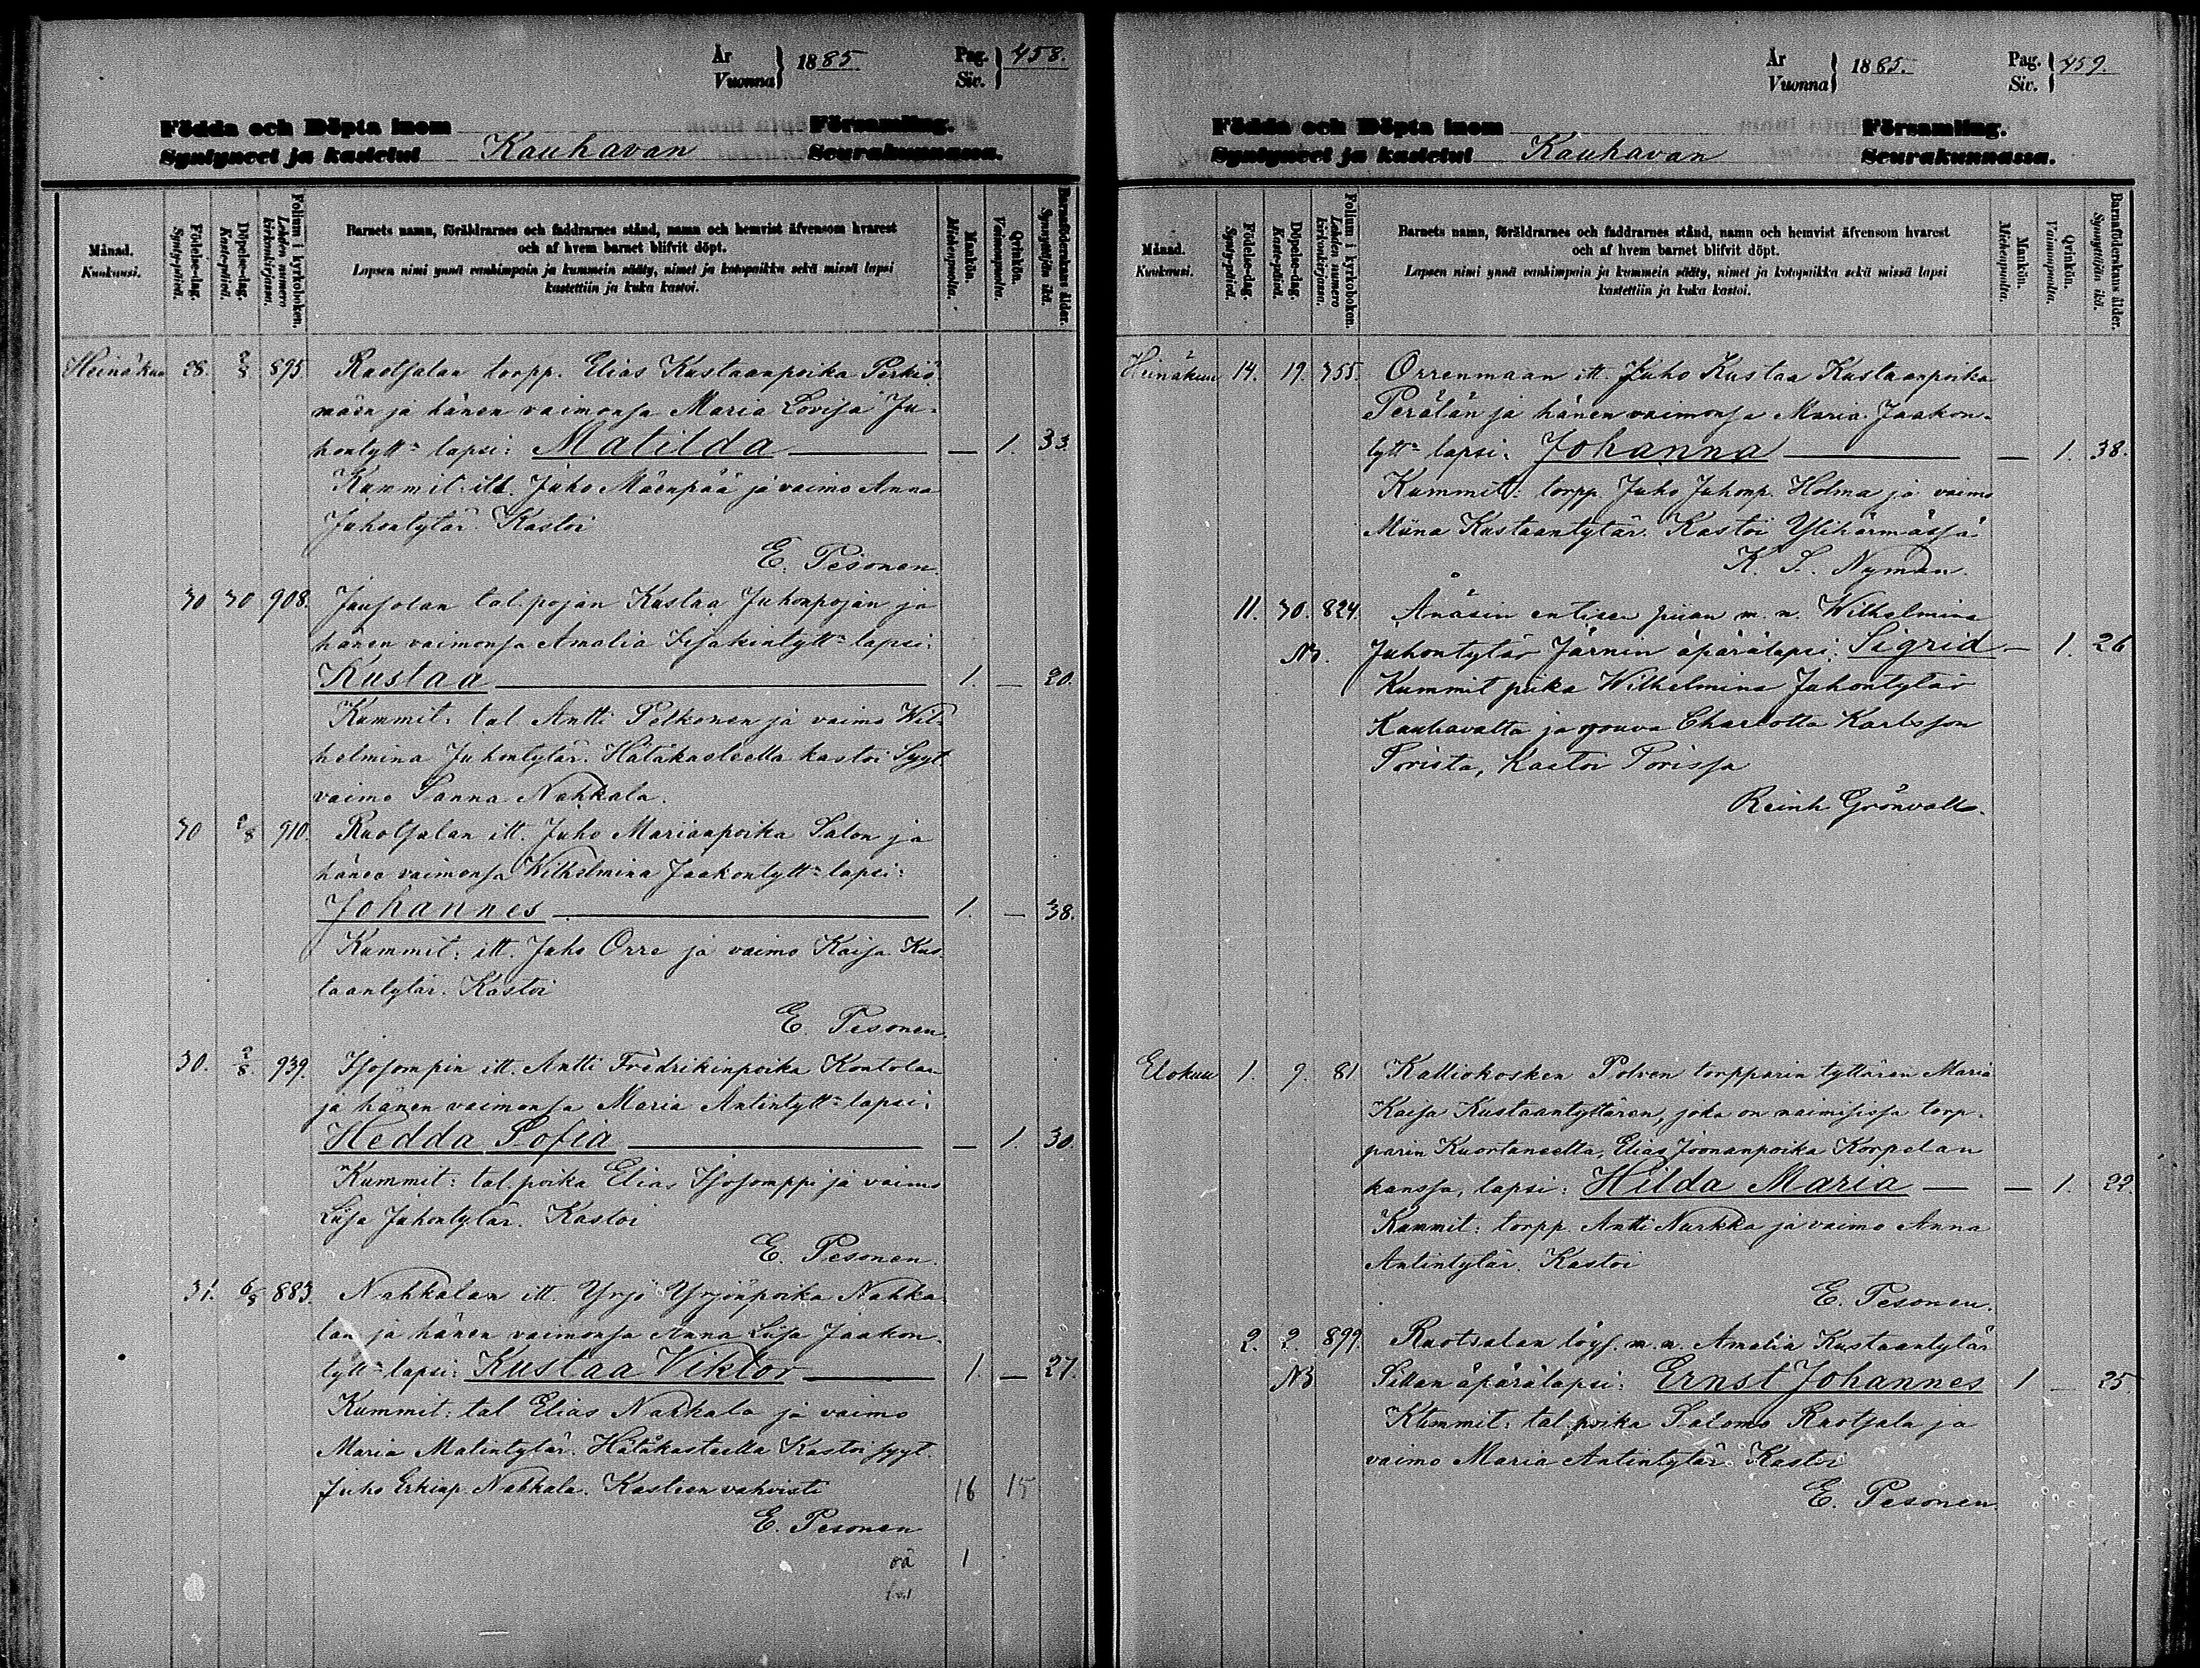 År
Vuonna } 1885.
Pag.
Siv. } 458.
Födda och Döpta inom Församling.
Syntyneet ja kastetut Kauhavan Seurakunnassa.
Månad. Kuukausi.
Födelse-dag. Synty-päivä.
Döpelse-dag. Kaste-päivä.
Folium i kyrkoboken. Lehden numero kirkonkirjassa.
Barnets namn, föräldrarnes och faddrarnes stånd, namn och hemvist äfvensom hvarest
och af hvem barnet blifvit döpt.
Lapsen nimi ynnä vanhimpain ja kummein sääty, nimet ja kotopaikka sekä missä lapsi
kastettiin ja kuka kastoi.
Mankön. Miehenpuolta.
Qvinkön. Vaimonpuolta.
Barnaföderskans ålder. Synnyttäjän ikä.
Heinäkuu 28. 2/8 895. Ruotsalan torpp. Elias Kustaanpoika Perkiö-
mäen ja hänen vaimonsa Maria Lovisa Ju-
hontytt= lapsi: Matilda — 1. 33.
Kummit: itt. Juho Mäenpää ja vaimo Anna
Juhontytär. Kastoi
E. Pesonen.
30 30 908. Jausolan tal. pojan Kustaa Juhonpojan ja
hänen vaimonsa Amalia Isakintytt= lapsi:
Kustaa 1. — 20.
Kummit: tal. Antti Pelkonen ja vaimo Wil-
helmina Juhontytär. Hätäkasteella kastoi Syyt.
vaimo Sanna Nahkala.
30 2/8 910. Ruotsalan itt. Juho Marianpoika Salon ja
hänen vaimonsa Wilhelmina Jaakontytt= lapsi:
Johannes 1. — 38.
Kummit: itt. Juho Orre ja vaimo Kaisa Kus-
taantytär. Kastoi
E. Pesonen.
30. 2/8. 939. Isosompin itt. Antti Fredrikinpoika Kontolan
ja hänen vaimonsa Maria Antintytt= lapsi:
Hedda Sofia — 1. 30.
Kummit: tal. poika Elias Isosomppi ja vaimo
Liisa Juhontytär. Kastoi
E. Pesonen.
31. 6/8 883. Nahkalan itt. Yrjö Yrjönpoika Nahka-
lan ja hänen vaimonsa Anna Liisa Jaakon-
tytt= lapsi: Kustaa Viktor 1. — 27.
Kummit: tal. Elias Nahkala ja vaimo
Maria Matintytär. Hätäkasteella Kastoi syyt.
Juho Erkinp. Nahkala. Kasteen vahvisti 16 15
E. Pesonen
oä 1
År
Vuonna } 1885.
Pag.
Siv. } 459.
Födda och Döpta inom Församling.
Syntyneet ja kastetut Kauhavan Seurakunnassa.
Månad. Kuukausi.
Födelse-dag. Synty-päivä.
Döpelse-dag. Kaste-päivä.
Folium i kyrkoboken. Lehden numero kirkonkirjassa.
Barnets namn, föräldrarnes och faddrarnes stånd, namn och hemvist äfvensom hvarest
och af hvem barnet blifvit döpt.
Lapsen nimi ynnä vanhimpain ja kummein sääty, nimet ja kotopaikka sekä missä lapsi
kastettiin ja kuka kastoi.
Mankön. Miehenpuolta.
Qvinkön. Vaimonpuolta.
Barnaföderskans ålder. Synnyttäjän ikä.
Heinäkuu 14. 19. 755. Orrenmaan itt. Juho Kustaa Kustaanpoika
Perälän ja hänen vaimonsa Maria Jaakon-
tytt= lapsi: Johanna — 1. 38.
Kummit: torpp. Juho Juhonp. Holma ja vaimo
Miina Kustaantytär. Kastoi Ylihärmässä
K. S. Nyman.
11. 30. 824. Änäsin entisen piian m. n. Wilhelmina
NB. Juhontytär Järnin äpärälapsi: Sigrid — 1. 26
Kummit piika Wilhelmina Juhontytär
Kauhavalta ja rouva Charlotta Karlsson
Porista, Kastoi Porissa
Reinh Grönvall.
Elokuu 1. 9. 81 Kalliokosken Polven torpparin tyttären Maria
Kaisa Kustaantyttären, joka on naimisissa torp-
parin Kuortaneelta, Elias Joonanpoika Korpelan
kanssa, lapsi: Hilda Maria — 1. 22.
Kummit: torpp. Antti Nurkka ja vaimo Anna
Antintytär. Kastoi
E. Pesonen.
2. 2. 899. Ruotsalan löys. m. n. Amalia Kustaantytär
NB Sillan äpärälapsi: Ernst Johannes 1 — 25
Kummit: tal. poika Salomo Ruotsala ja
vaimo Maria Antintytär Kastoi
E. Pesonen